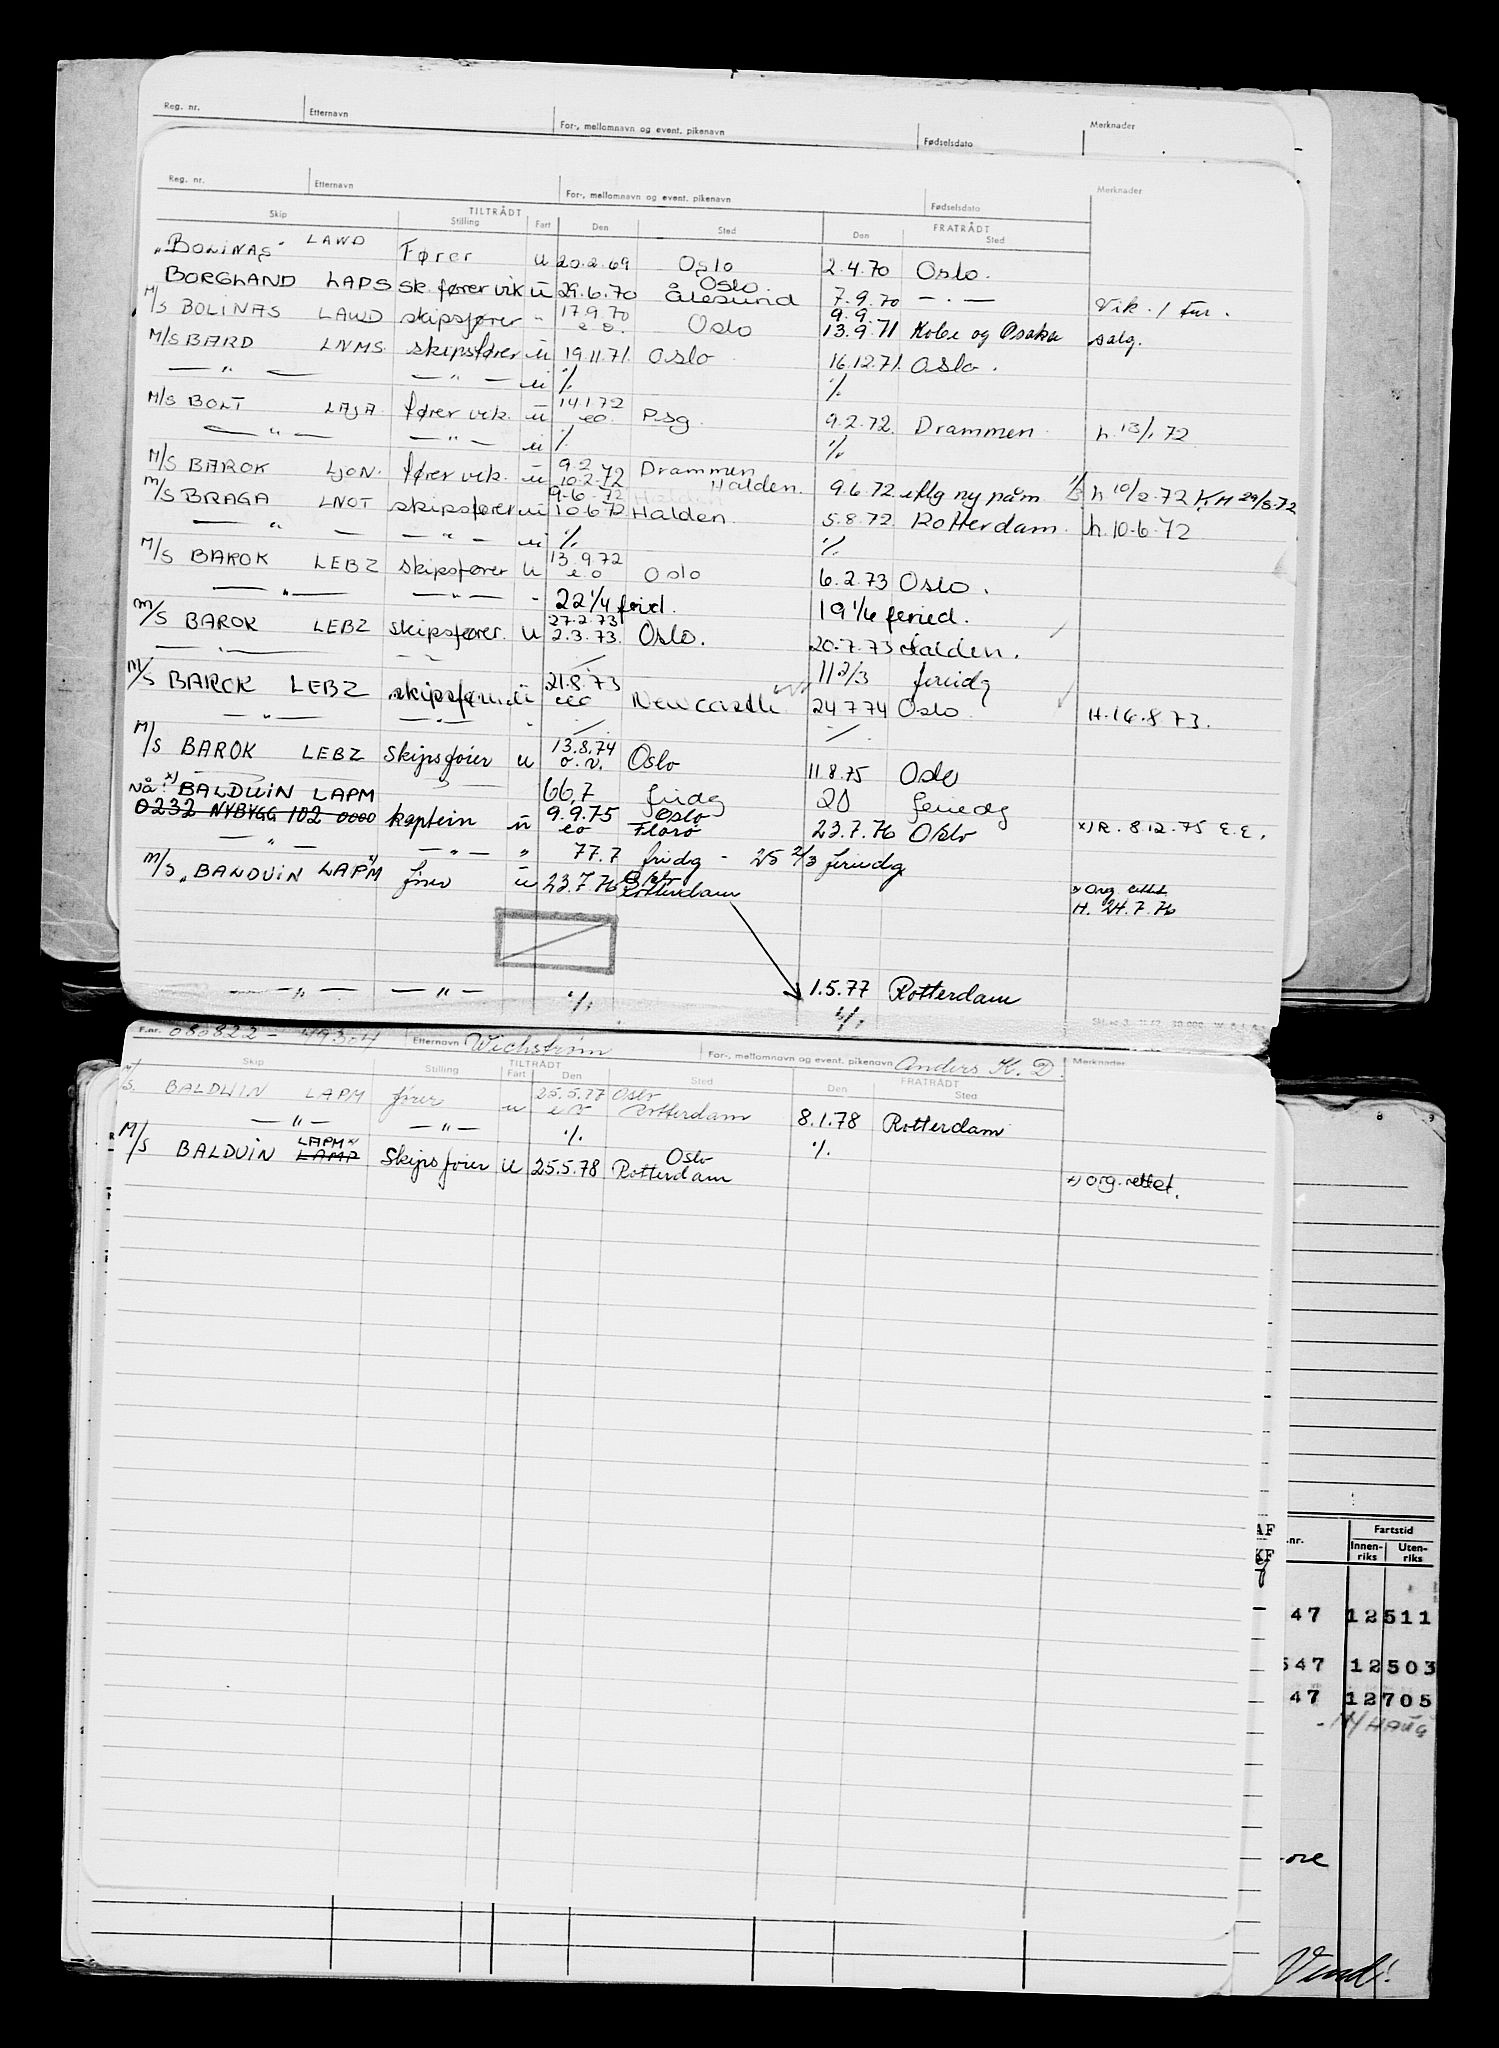 Reg. nr. Etternavn For-, mellomnavn og event. pikenavn Fødselsdato Merknader
Reg. nr. Etternavn For-, mellomnavn og event. pikenavn Fødselsdato Merknader
TILTRÅDT FRATRÅDT
Skip Stilling Fart Den Sted Den Sted
"BOLINAS" LAWD Fører u 20.2.69 Oslo 2.4.70 Oslo.
BORGLAND LAPS sk.fører vik u 29.6.70 Oslo. Ålesund 7.9.70 — . — Vik. 1 tur.
M/S BOLINAS LAWD skipsfører - 17.9.70 e.o. Oslo 9.9. 13.9.71 Kobe og Osaka salg.
M/S BARD LNMS skipsfører u 19.11.71 Oslo 16.12.71. Oslo.
— " — — " — u % %
M/S BOLT LAJA fører vik. u 14.1.72 eo. Psg. 9.2.72. Drammen h. 13/1 72
— " — — " — u % %
M/S BAROK LJON. fører vik. u 9.2.72 10.2.72 Drammen Halden. 9.6.72 iflg ny påm h 10/2-72 K.M 29/8-72
M/S BRAGA LNOT skipsfører u 9-6-72 10.6.72 Halden Halden. 5.8.72 Rotterdam. h. 10.6.72
— " — — " — u % %
M/S BAROK LEBZ skipsfører u 13.9.72 e o Oslo 6.2.73 Oslo.
— " — — " — - 22 1/4 frid. 19 1/6 feried.
M/S BAROK LEBZ skipsfører. u 27.2.73 2.3.73. Oslo. 20.7.73 Halden.
— " — 11 2/3 feridg
M/S BAROK LEBZ skipsfører u 21.8.73 eo Newcastle 24.7.74 Oslo H. 16.8.73.
— " — — " —
M/S BAROK LEBZ Skipsfører u 13.8.74 o.v. Oslo 11.8.75 Oslo
66,7 fridg 20 feriedg
Nå: x) BALDUIN LAPM
0232 NYBYGG 102 0000 kaptein u 9.9.75 eo Oslo Florø 23.7.76 Oslo x) R. 8.12.75 E.E.
— " — — " — " 77.7 fridg - 25 2/3 feriedg
M/S "BALDUIN LAPM x) fører u 23.7.76 Oslo Rotterdam x) Org. rettet
H. 24.7.76
— " — — " — % 1.5.77 Rotterdam
%
F.nr. 080822 - 49304 Etternavn Wichstrøm For-, mellomnavn og event. pikenavn Anders K. D. Merknader
TILTRÅDT FRATRÅDT
Skip Stilling Fart Den Sted Den Sted
M/S. BALDUIN LAPM fører u 25.5.77 Oslo Rotterdam 8.1.78 Rotterdam
— " — — " — % %
M/S BALDUIN LAPM x) LAMP Skipsfører u 25.5.78 Oslo Rotterdam x) org. rettet.
8 9
Fartstid
.nr. Innen-riks Uten-riks
47 12511
547 12503
47 12705
HAUG
Vend!